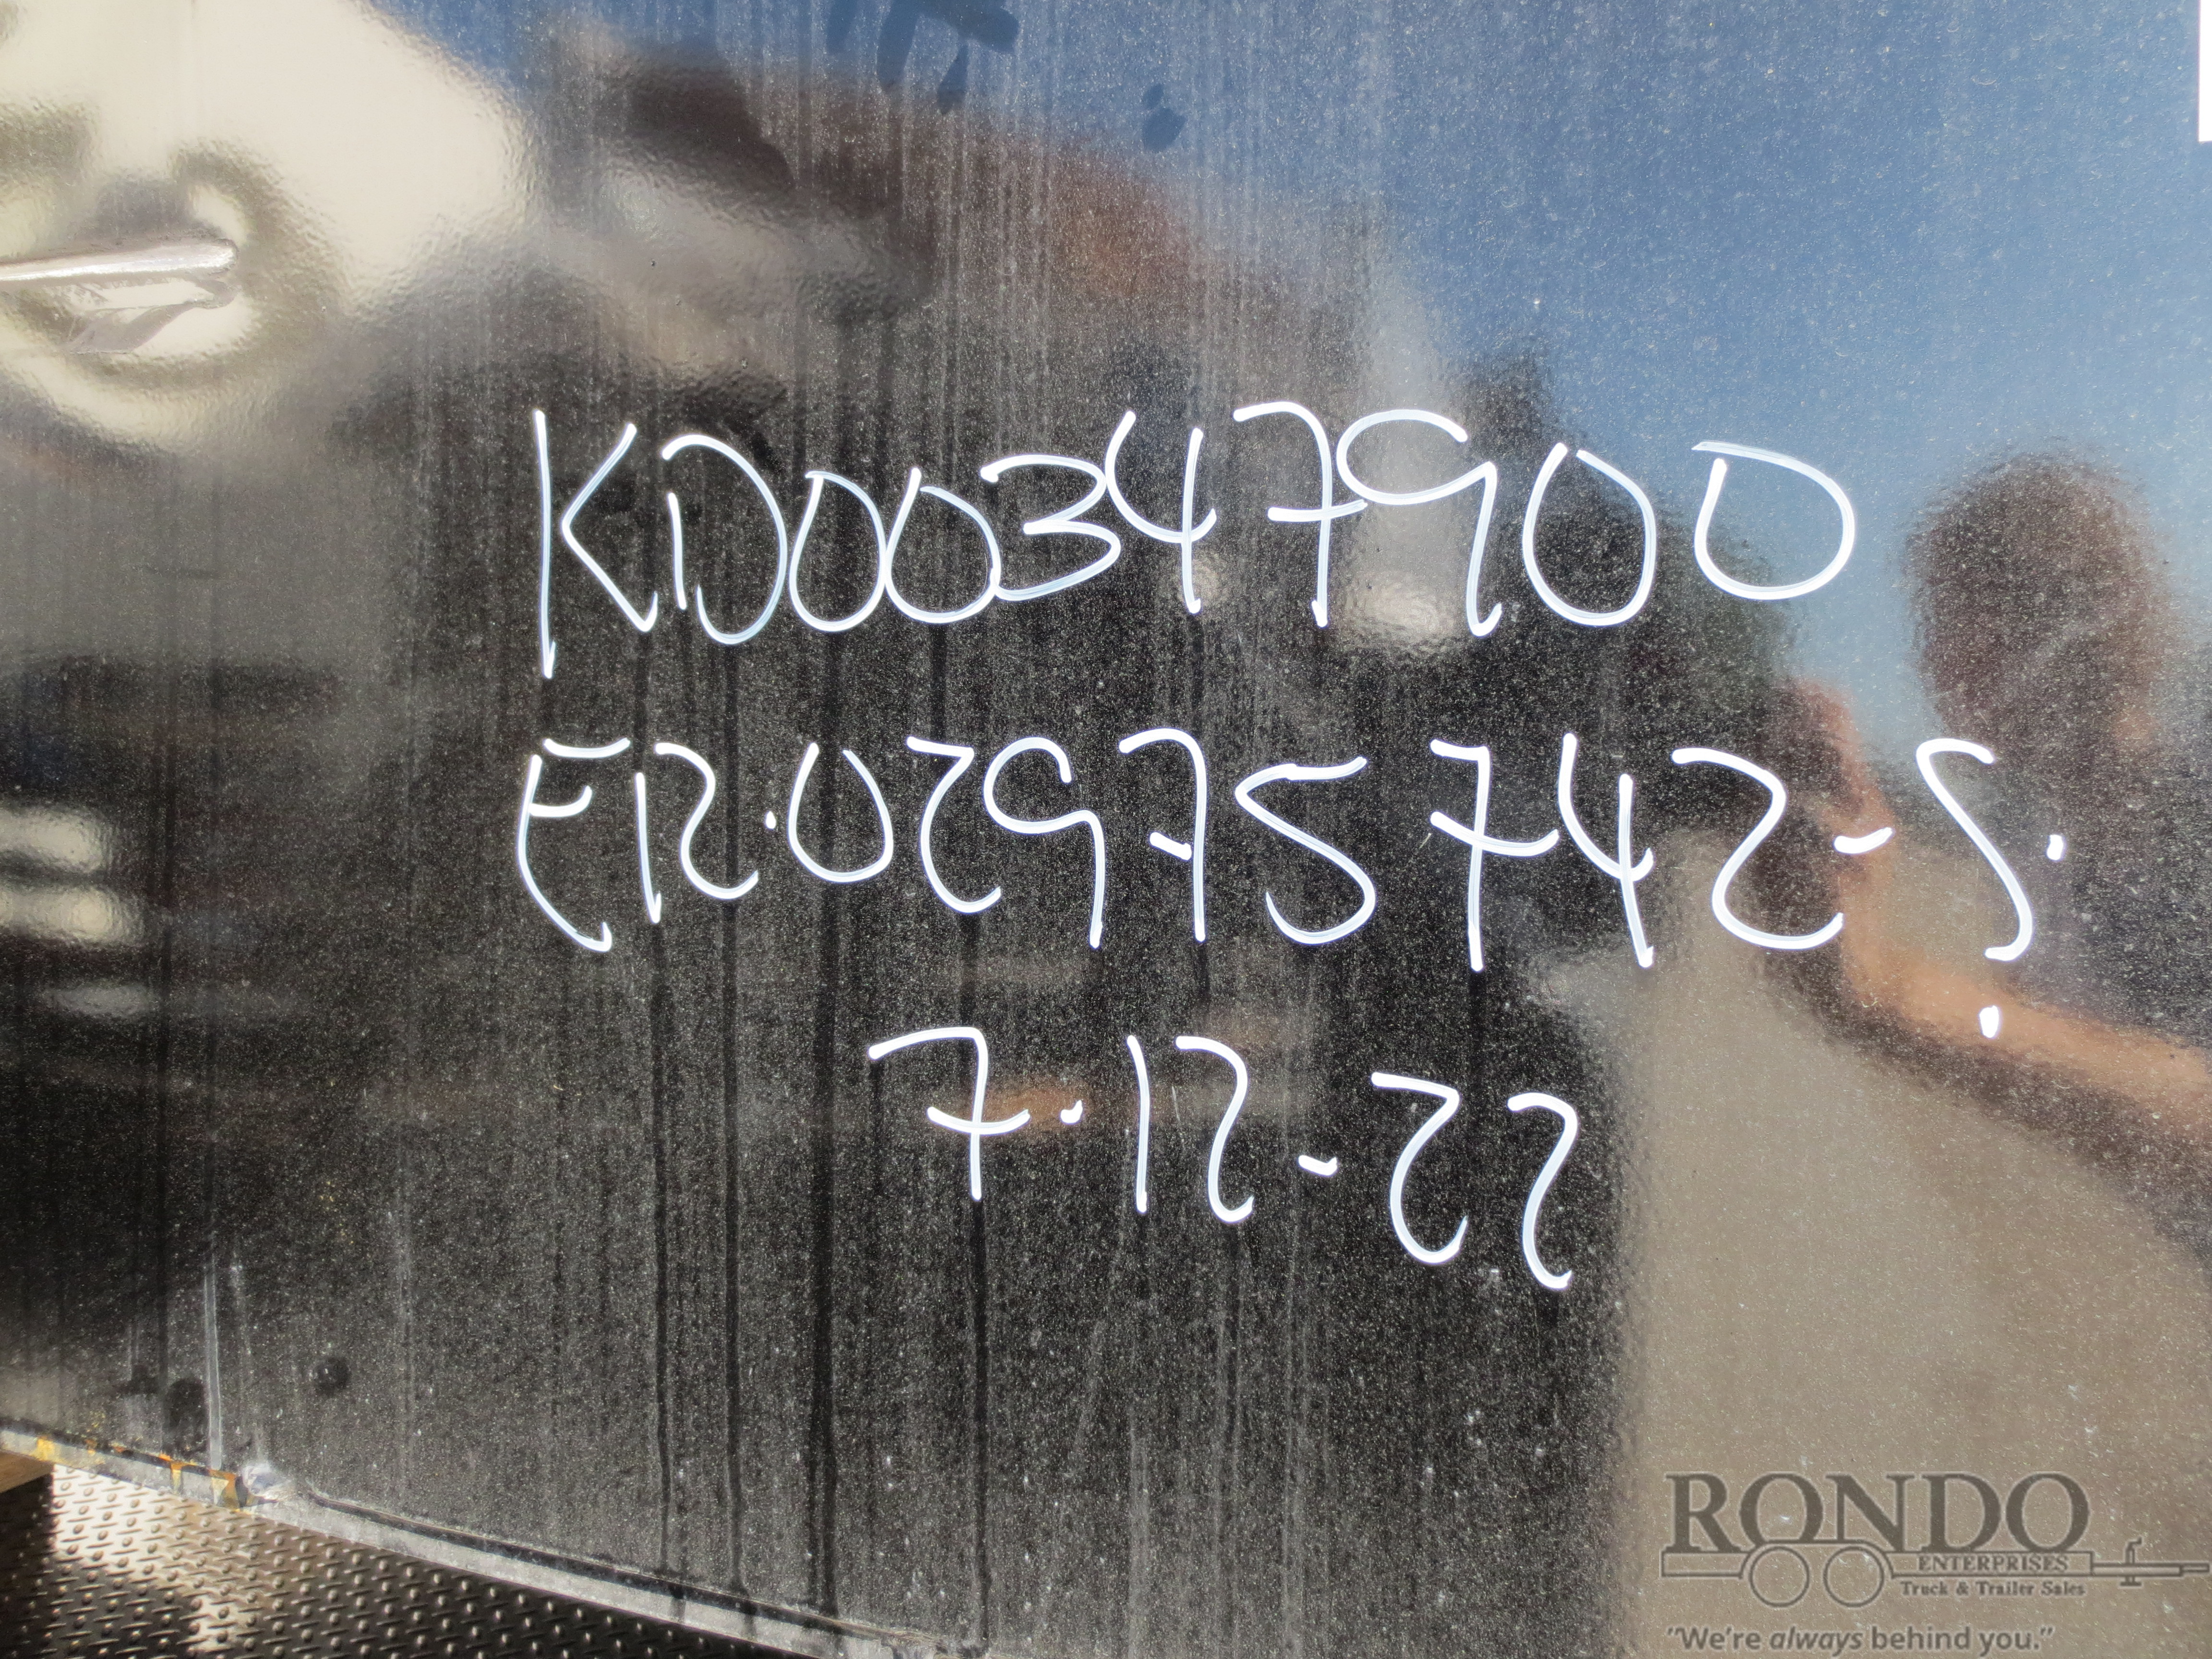 KD00347900
E12.02975742-5.
7.12-22
RONDO
ENTERPRISES
Truck & Trailer Sales
"We're always behind you."